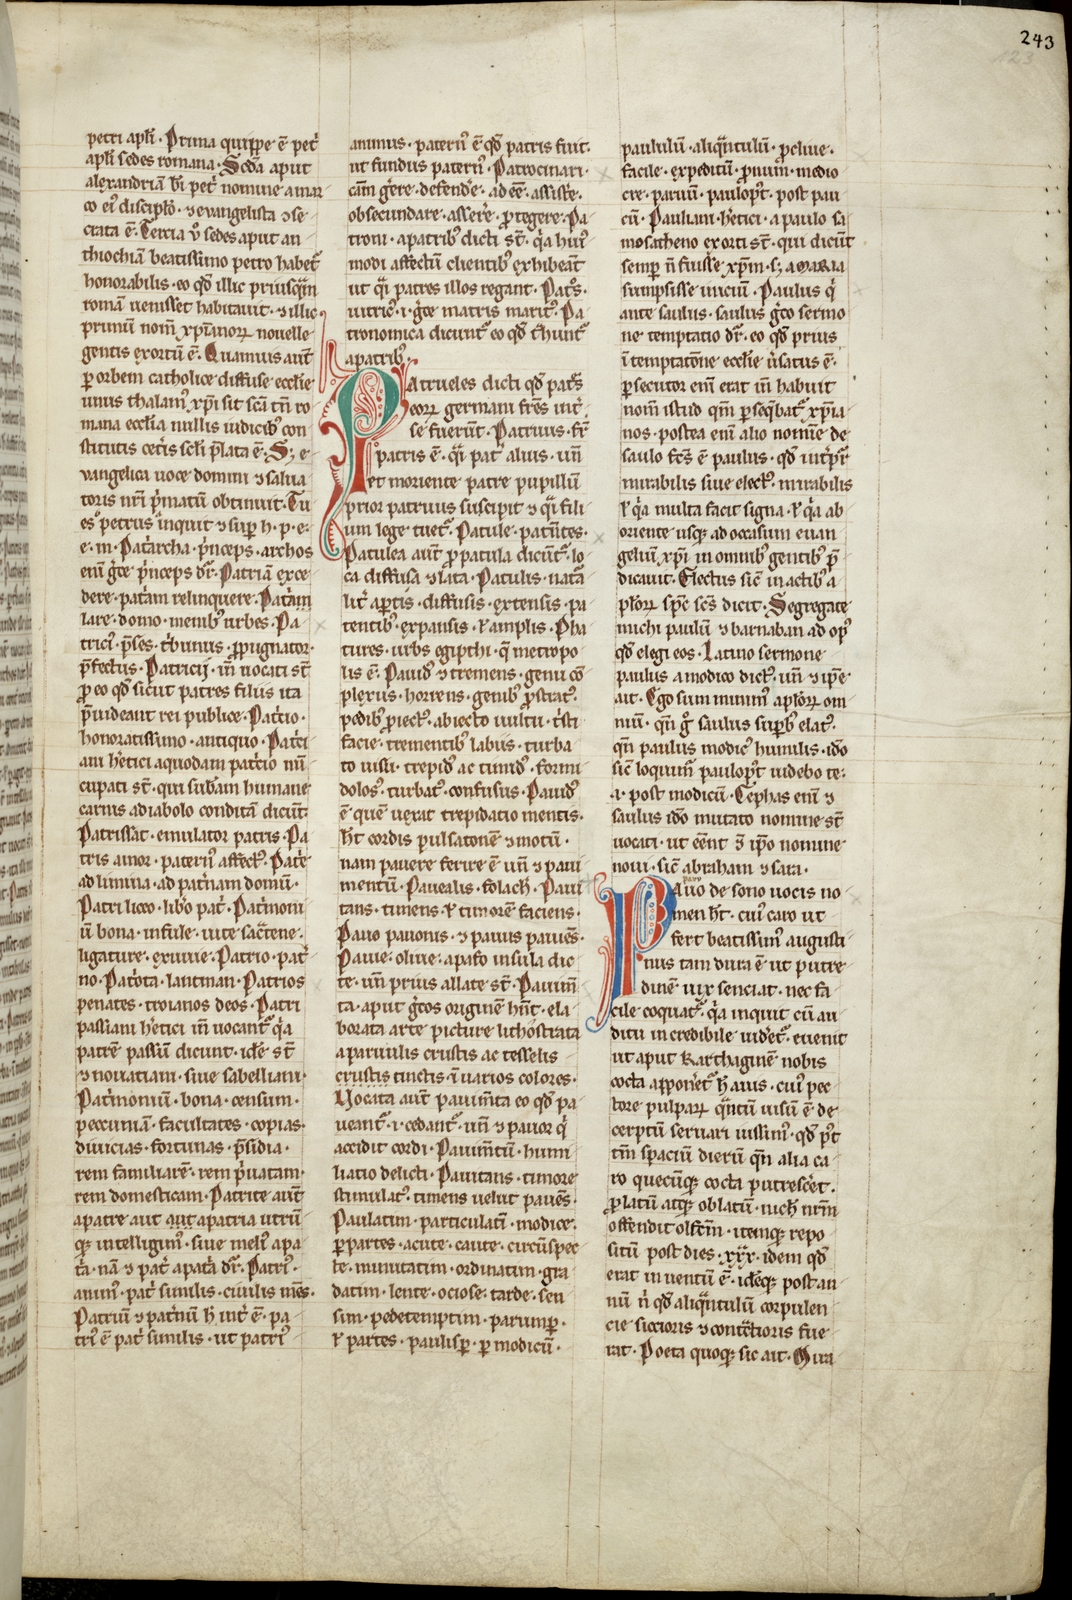 243
petri apłi · Prima quippe ē pet̄
apłi sedes romana · Scđa aput
alexandriā bt̄i pet̄ nomine a mar
co eiꝰ discipło · ⁊ evangelista ⁊ se
crata ē · Tercia v̊ sedes aput an
thiochiā beatissimo petro habet᷑
honorabilis · eo qđ illic priusqͣm
romā uenisset habitauit · ⁊ illic
primū nom̄ xp̄ianoꝝ nouelle
gentis exortū ē · Quamuis aut̄
ꝑ orbem catholice diffuse ecclie
unus thalamꝰ xp̄i sit scā tn̄ ro
mana ecclia nullis iudicibꝰ con
stitutis cet̄is scłi p̄lata ē · Sꝫ e
vangelica uoce domini ⁊ salua
toris nr̄i p̄matū obtinuit · Tu
es petrus inquit ⁊ sup̄ h · p · e ·
e · m · Pat̄archa · p̄nceps · archos
eni᷑ g̊ce p̄nceps dr̄ · Patriā exce
dere · pat̄am relinquere · Pat̄am
lare · domo · menibꝰ urbes · Pa
trici᷑ · p̄ses · t̄bunus · ꝓpugnator ·
p̄fectus · Patricij · in̄ uocati st̄
ꝓ eo qđ sicut patres filiis ita
p̄uideant rei publice · Pat̄cio ·
honoratissimo · antiquo · Pat̄ci
ani h̄etici a quodam pat̄cio nū
cupati st̄ · qui subām humane
carnis a diabolo conditā dicūt
Patrissat · emulator patris · Pa
tris amor · paternꝰ affectꝰ · Pat̄e
ad limina · ad pat̄nam domū ·
Patri liceo · libo pat̄ · Pat̄moni
ū bona · infule · uite sac̄tene ·
ligature · exuuie · Patrio · pat̄
no · Pat̄ota · lantman · Patrios
penates · troianos deos · Patri
passiani h̄etici in̄ uocant᷑ qͥa
patrē passū dicunt · idē st̄
⁊ nouatiani · siue sabelliani ·
Pat̄moniū · bona · censum ·
peccuniā · facultates · copias ·
diuicias · fortunas · p̄sidia ·
rem familiarē · rem p̄uatam ·
rem domesticam · Patrite aut̄
a patre aut aut a patria utrū
qꝫ intelligimꝰ · siue meliꝰ a pa
t̄a · nā ⁊ pat̄ a pat̄a dr̄ · Patriꝰ ·
animꝰ · pat̄ similis · ciuilis mēs ·
Patriū ⁊ pat̄nū h̄ int̄ ē · pa
triꝰ ē pat̄ similis · ut patriꝰ
animus · paternꝰ ē qđ patris fuit ·
ut fundus paternꝰ · Patrocinari ·
cām ḡere · defende̅ · ad eē · assiste̅ ·
obsecundare · asse̅re · ꝓtegere · Pa
troni · a patribꝰ dicti st̄ · qͥa huiꝰ
modi affectū clientibꝰ exhibeāt
ut qͣi patres illos regant · Pat̄s ·
uitricꝰ · i · g̊ce matris maritꝰ · Pa
tronomica dicunt᷑ eo qđ t̄hunt᷑
a patribꝰ
Patrueles dicti qđ pat̄s
eoꝝ germani fr̄es int̄
se fuerūt · Patruus · fr̄
patris ē · qͣi pat̄ alius · un̄
et moriente patre pupillū
prior patruus suscipit ⁊ qͣi fili
um lege tuet᷑ · Patule · patn̄tes ·
Patulea aut̄ ꝓ patula dicūt᷑ · lo
ca diffusa ⁊ lata · Patulis · natā
lit̄ ap̄tis · diffusis · extensis · pa
tentibꝰ · expansis · ł amplis · Pha
tures · urbs egipthi · q̄ metropo
lis ē · Pauidꝰ ⁊ tremens · genu cō
plexus · horrens · genibꝰ ꝓstratꝰ ·
pedibꝰ ꝓiectꝰ · abiecto uultu · t̄sti
facie · trementibꝰ labiis · turba
to uisu · trepidꝰ ac timidꝰ · formi
dolosꝰ · turbatꝰ · confusus · Pauidꝰ
ē quē uexat trepidatio mentis ·
h̄t cordis pulsatonē ⁊ motū ·
nam pauere ferire ē un̄ ⁊ paui
mentū · Pauealis · folach̄ · Paui
tans · timens · ł timorē faciens ·
Pauo pauonis · ⁊ pauus pauēs ·
Pauie · oliue · a pafo insula dic
te · un̄ prius allate st̄ · Pauim̄
ta · aput g̊cos originē hn̄t · ela
borata arte picture lithostrata
a paruulis crustis ac tesselis
crustis tinctis · ī uarios colores ·
Uocata aut̄ pauim̄ta eo qđ pa
ueant᷑ · i · cedant᷑ · un̄ ⁊ pauor qͥ
accidit cordi · Pauim̄tū · humi
liatio delicti · Pauitans · timore
stimulatꝰ · timens uelut pauēs ·
Paulatim · particulatī · modice ·
ꝑ partes · acute · caute · circūspec
te · minutatim · ordinatim · gra
datim · lente · ociose · tarde · sen
sim · pedetemptim · parumꝑ ·
ł partes · paulisꝑ · ꝑ modicū ·
paululū · aliqͣ̄tulū · ꝓcliue ·
facile · expeditū · ꝓnum · medio
cre · paruū · paulop̄t · post pau
cū · Pauliani · h̄etici · a paulo sa
mosatheno exorti st̄ · qui dicūt
semꝑ n̄ fuisse xp̄m · sꝫ a MARIA
sumpsisse iniciū · Paulus qͥ
ante saulus · saulus g̊co sermo
ne temptatio dr̄ · eo qđ prius
ī temptatōne ecclie ūsatus ē ·
ꝑsecutor eni᷑ erat in̄ habuit
nom̄ istud qm̄ ꝑseq̄bat᷑ xp̄ia
nos · postea eni᷑ alio nomīe de
saulo fc̄s ē paulus · qđ int̄pr̄
mirabilis siue electꝰ · mirabilis
ł qͥa multa facit signa · ł qͥa ab
oriente usqꝫ ad occasum euan
geliū xp̄i in omnibꝰ gentibꝰ p̄
dicauit · Electus sic̄ in actibꝰ a
płoꝝ spc̄ scs̄ dicit · Segregate
michi paulū ⁊ barnaban ad opꝰ
qđ elegi eos · Latino sermone
paulus a modico dictꝰ · un̄ ⁊ ip̄e
ait · Ego sum minimꝰ apłoꝝ om
niū · qn̄ g̊ saulus suꝑbꝰ elatꝰ ·
qn̄ paulus modicꝰ humilis · idō
sic̄ loquim̄ paulop̄t uidebo te ·
· i · post modicū · Cephas eni᷑ ⁊
saulus idō mutato nomine st̄
uocati · ut eēnt ⁊ ip̄o nomine
noui · sic̄ abraham ⁊ sara ·
Pauo de sono uocis no
men h̄t · cuiꝰ caro ut
fert beatissimꝰ augusti
nus tam dura ē ut putre
dinē uix senciat · nec fa
cile coquat᷑ · qͥa inquit cū au
ditu incredibile uidet᷑ · euenit
ut aput karthaginē nobis
cocta apponet᷑ h̄ auis · cuiꝰ pec
tore pulpaꝝ qͣntū uisū ē de
cerptū seruari iussimꝰ · qđ p̄t
tm̄ spaciū dierū qn̄ alia ca
ro quecūqꝫ cocta putresc̄et ·
ꝓlatū atqꝫ oblatū · nich̄ nr̄m
offendit olfctm̄ · itemqꝫ repo
sitū post dies · xxx · idem qđ
erat inuentū ē · idēqꝫ post an
nū n̄ qđ aliqͣntulū corpulen
cie siccioris ⁊ cont̄ctioris fue
rat · Poeta quoqꝫ sic ait · Mira